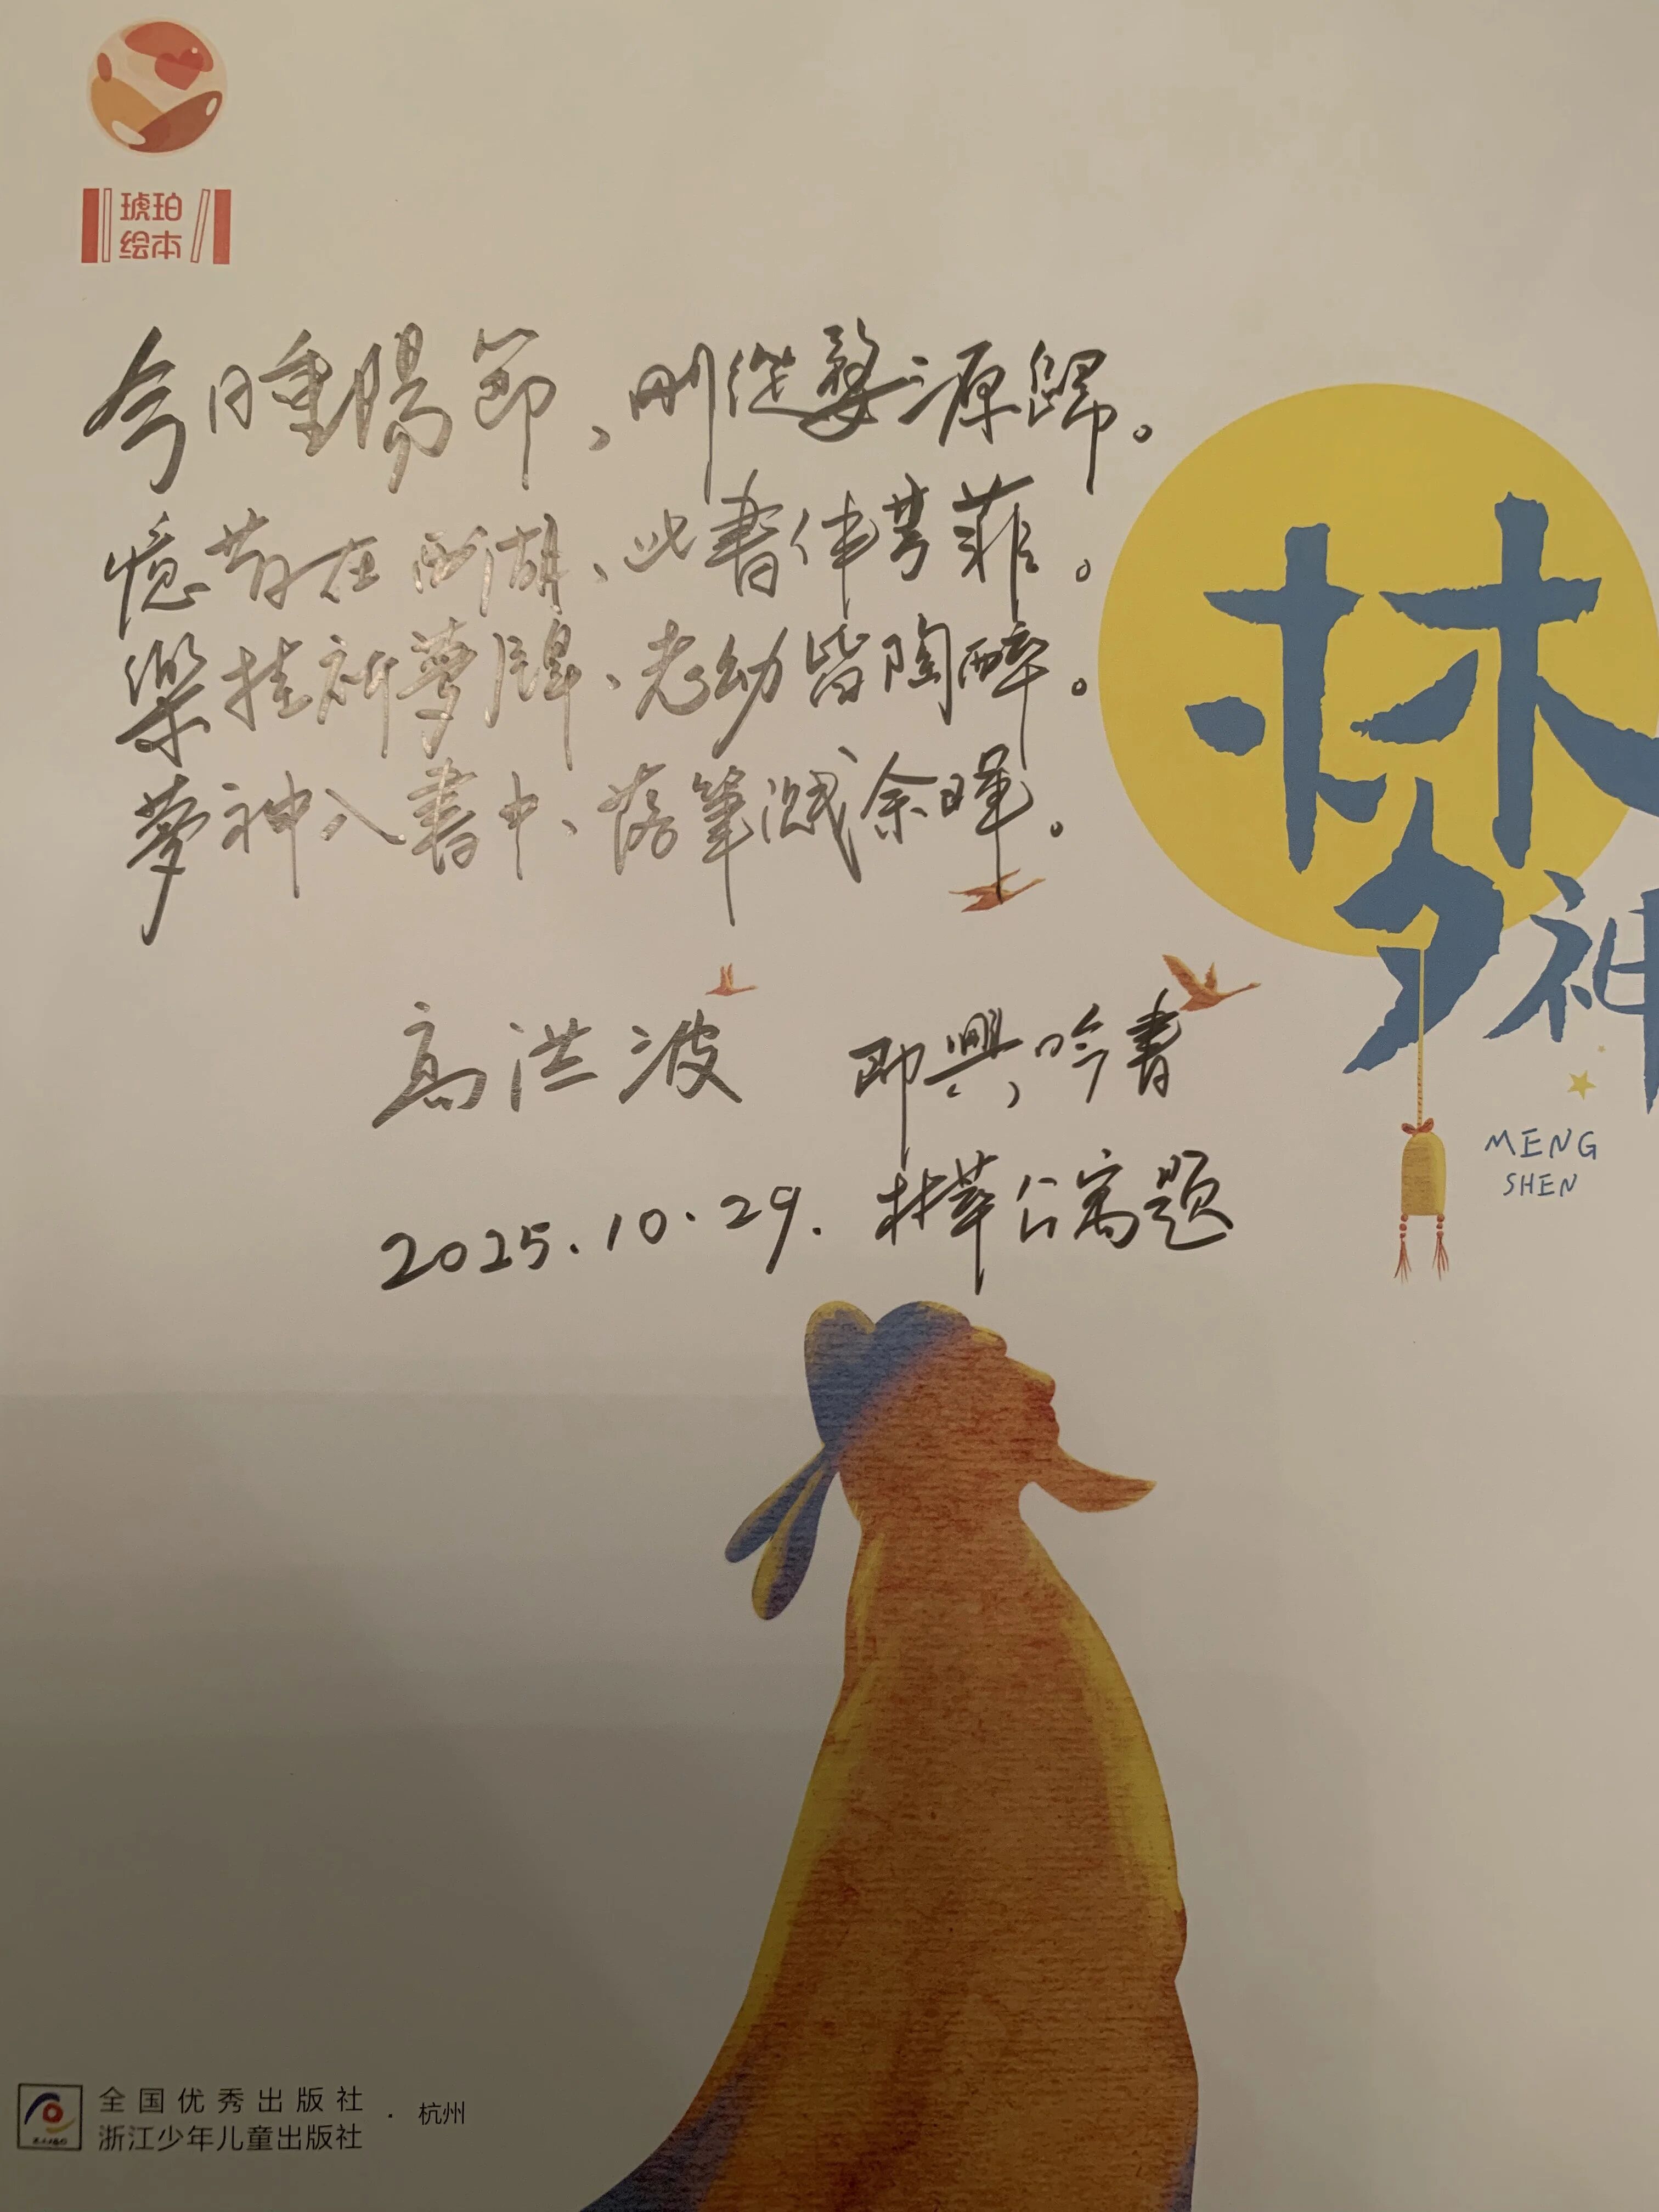 琥珀
绘本
今日重陽節、剛從婺源歸。
憶昔在西湖、此書伴芳菲。
樂挂祈夢牌、老幼皆陶醉。
夢神入書中、落筆濺余暉。
高洪波 即興吟書
2025.10.29. 林萃公寓题
梦神
MENG
SHEN
全国优秀出版社
浙江少年儿童出版社 · 杭州